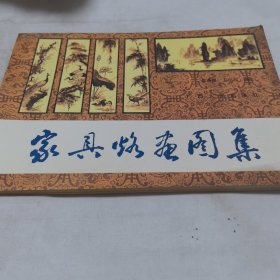 家具烙画图集